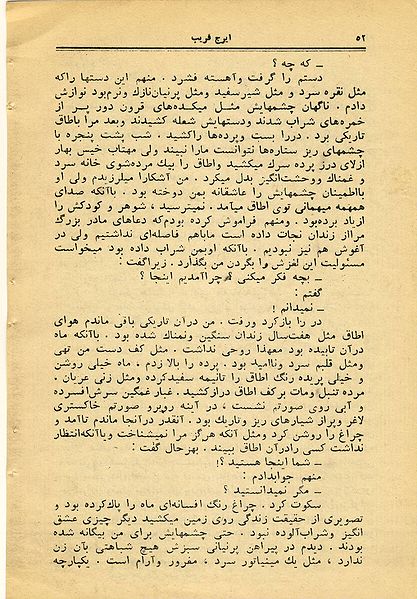 ۵۲ ایرج قریب
ــ که چه ؟
دستم را گرفت وآهسته فشرد . منهم این دستها راکه
مثل نقره سرد و مثل شیرسفید ومثل پرنیان‌نازك ونرم‌بود نوازش
دادم . ناگهان چشمهایش مثــل میکــده‌های قرون دور پــر از
خمره‌های شراب شدند ودستهایش شعله کشیدند وبعد مرا باطاق
تاریکی برد . دررا بست وپرده‌ها راکشید . شب پشت پنجره با
چشمهای ریز ستاره‌ها نتوانست مارا ببیند ولی مهتاب خیس بهار
ازلای درز پرده سرك میکشید واطاق را بیك مرده‌شوی خانه سرد
و غمناك ووحشت‌انگیز بدل میکرد . من آشکارا میلرزیدم ولی او
بااطمینان چشمهایش را عاشقانه بمن دوخته بود . باآنکه صدای
همهمه میهمانی توی اطاق میآمد . نمیترسید ، شوهر و کودکش را
ازیاد برده‌بود . ومنهم فراموش کرده بودم‌که دعاهای مادر بزرگ
مرااز زندان نجات داده است ماباهم فاصله‌ای نداشتیم ولی در
آغوش هم نیز نبودیم . باآنکه اوبمن شراب داده بود میخواست
مسئولیت این لغزش را بگردن من بگذارد . زیراگفت :
ــ بچه فکر میکنی ؟ چراآمدیم اینجا ؟
گفتم :
ــ نمیدانم !
در را بازکرد ورفت . من درآن تاریکی باقی ماندم هوای
اطاق مثل هفت‌سال زندان سنگین ونمناك شده بود . باآنکه ماه
درآن تابیده بود معهذا روحی نداشت . مثل کف دست من تهی
ومثل قلبم سرد وناامید بود . پرده را بالا زدم ، ماه خیلی روشن
و خیلی پریده رنگ اطاق را تانیمه سفیدکرده ومثل زنی عریان .
مرده تنبل ومات برکف اطاق درازکشید . غبار غمگین سرش‌افسرده
و آبی روی صورتم نشست ، در آینه روبرو صورتم خاکستری
لاغر وپراز شیارهای ریز وتاریك بود . آنقدر درآنجا ماندم تاآمد و
چراغ را روشن کرد ومثل آنکه هرگز مرا نمیشناخت وباآنکه‌انتظار
نداشت کسی رادرآن اطاق ببیند . بهرحال گفت :
ــ شما اینجا هستید ؟!
منهم جوابدادم :
ــ مگر نمیدانستید ؟
سکوت کرد . چراغ رنگ افسانه‌ای ماه را پاك‌کرده بود و
تصویری از حقیقت زندگی روی زمین میکشید دیگر چیزی عشق
انگیز وشراب‌آلوده نبود . حتی چشمهایش برای من بیگانه شده
بودند . دیدم در پیراهن پرنیانی سبزش هیچ شباهتی بآن زن
ندارد ، مثل یك مینیاتور سرد ، مغرور وآرام است . یکپارچه